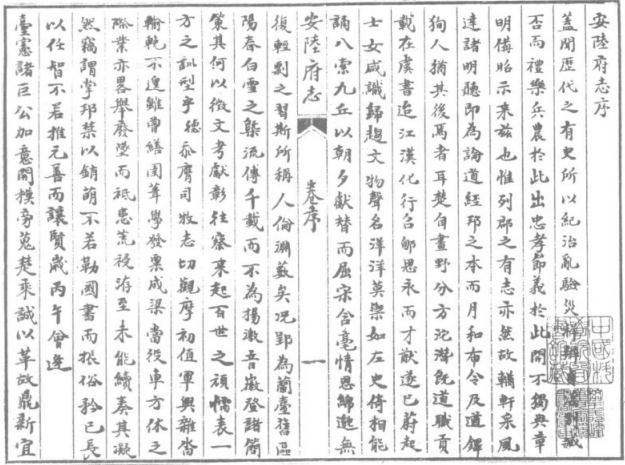 安陸府志序
蓋聞歷代之有史所以紀治亂驗災祥辨
否而禮樂兵農於此出忠孝節義於此開不獨典章
明備昭示来茲也惟列郡之有志亦然故輶軒采風
達諸明聽即為論道經邦之本而月和布令及道鐸
狥人猶其後焉者耳楚自畫野分方沱潛旣道職貢
載在虞書迨江漢化行召郇思永而才猷遂已蔚起
士女咸識歸趨文物聲名洋洋莫樂如左史倚相能
誦八索九丘以朝夕獻替而屈宋含毫情思綿邈無
安陸府志
卷序
一
復輕剽之習斯所稱人倫淵藪矣况郢為蘭臺舊區
陽春白雪之槩流傳千載而不為揚潋音徽登諸簡
策其何以徵文考獻彰往察来起百世之頑懦表一
方之訓型乎德忝膺司牧志切觀摩初值軍興雜沓
輸輓不遑雖曹繕圉葺學發粟成梁當役車方休之
際業亦畧舉廢墜而祗患荒祲洊至未能續奏其凝
然竊謂掌邦禁以銷萌不若勒國書而振俗矜已長
以任智不若推元善而讓賢歲丙午會逢
臺憲諸巨公加意開模旁蒐楚乘誠以革故鼎新宜